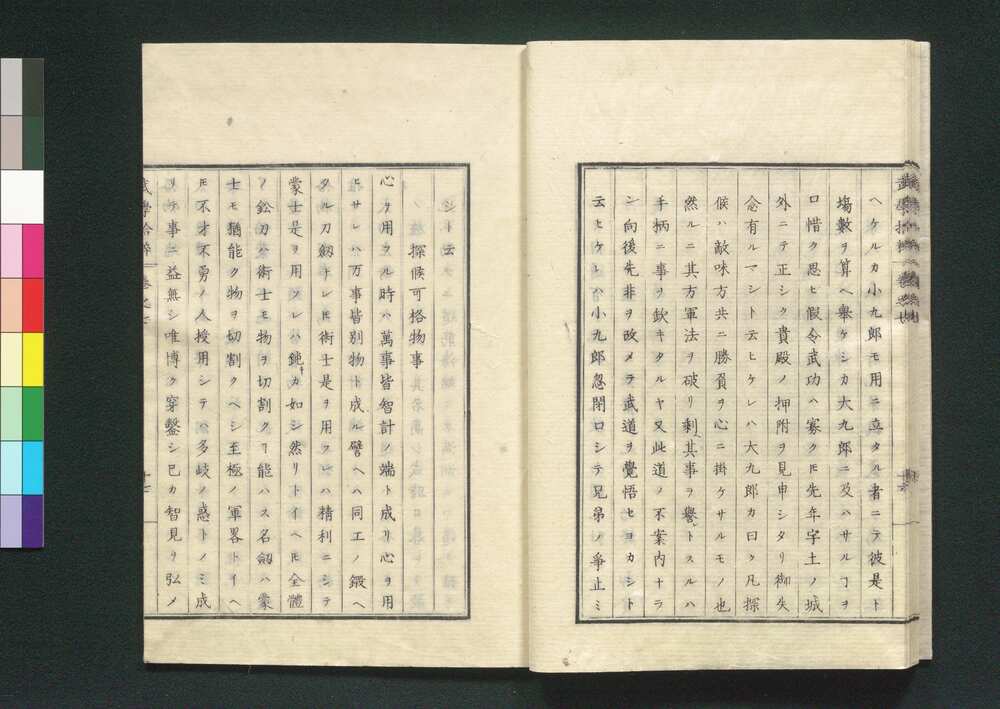 ヘケルカ小九郎モ用ニ立タル者ニテ彼是ト
塲數ヲ算ヘ擧ケシカ大九郎ニ及ハサルヿヲ
口惜ク思ヒ假令武功ハ寡クモ先年宇土ノ城
外ニテ正シク貴殿ノ押附ヲ見申シタリ御失
念有ルマシト云ヒケレハ大九郎カ曰ク凡探
候ハ敵味方共ニ勝負ヲ心ニ掛ケサルモノ也
然ルニ其方軍法ヲ破リ剰其事ヲ譽トスルハ
手柄ニ事ヲ欽キタルヤ又此道ノ不案内ナラ
ン向後先非ヲ改メテ武道ヲ覺悟セヨカシト
云ヒケレハ小九郎忽閉口シテ兄弟ノ爭止ミ
シト云
探候可格物事
心ヲ用ヲル時ハ萬事皆智計ノ端ト成リ心ヲ用
ヒサレハ万事皆別物ト成ル譬ヘハ同工ノ鍛ヘ
タル刀劔ナレモ術士是ヲ用フレハ精利ニシテ
蒙士是ヲ用フレハ鈍キカ如シ然リトイヘモ全體
ノ鉛刀ハ術士モ物ヲ切割クヿ能ハス名劔ハ蒙
士モ猶能ク物ヲ切割クヘシ至極ノ軍畧トイヘ
モ不才不勇ノ人授用シテハ多岐ノ惑トノミ成
リテ事ニ益無シ唯博ク穿鑿シ已カ智見ヲ弘メ